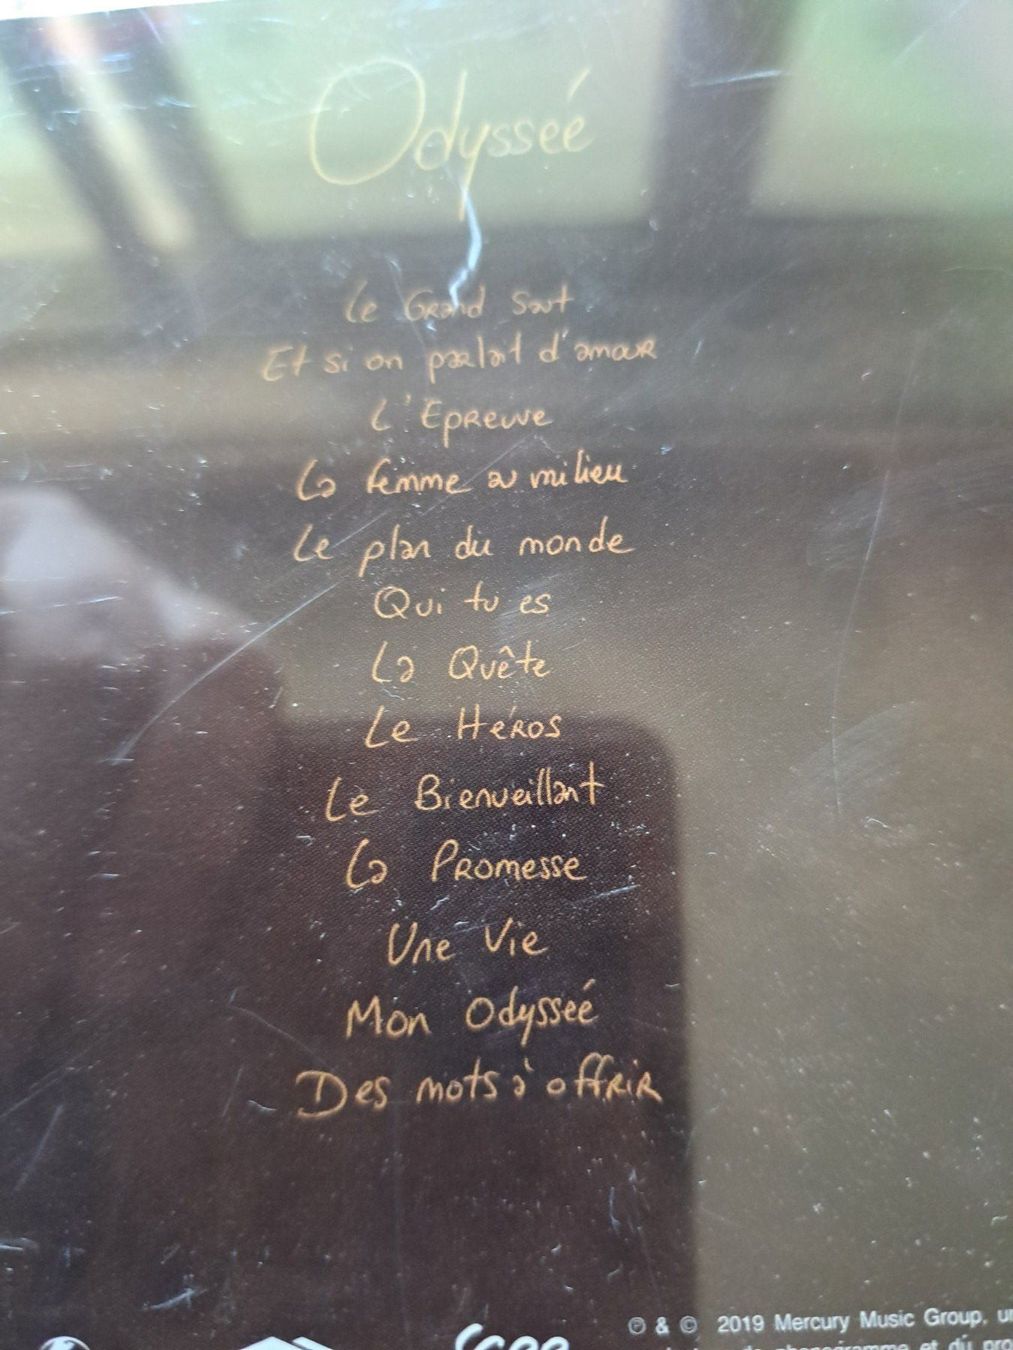 Odysseé
Le Grand Saut
Et si on parlait d'amour
L'Epreuve
La femme au milieu
Le plan du monde
Qui tu es
La Quête
Le Héros
Le Bienveillant
La Promesse
Une Vie
Mon Odysseé
Des mots à offrir
℗ & © 2019 Mercury Music Group, un
phonogramme et du pro